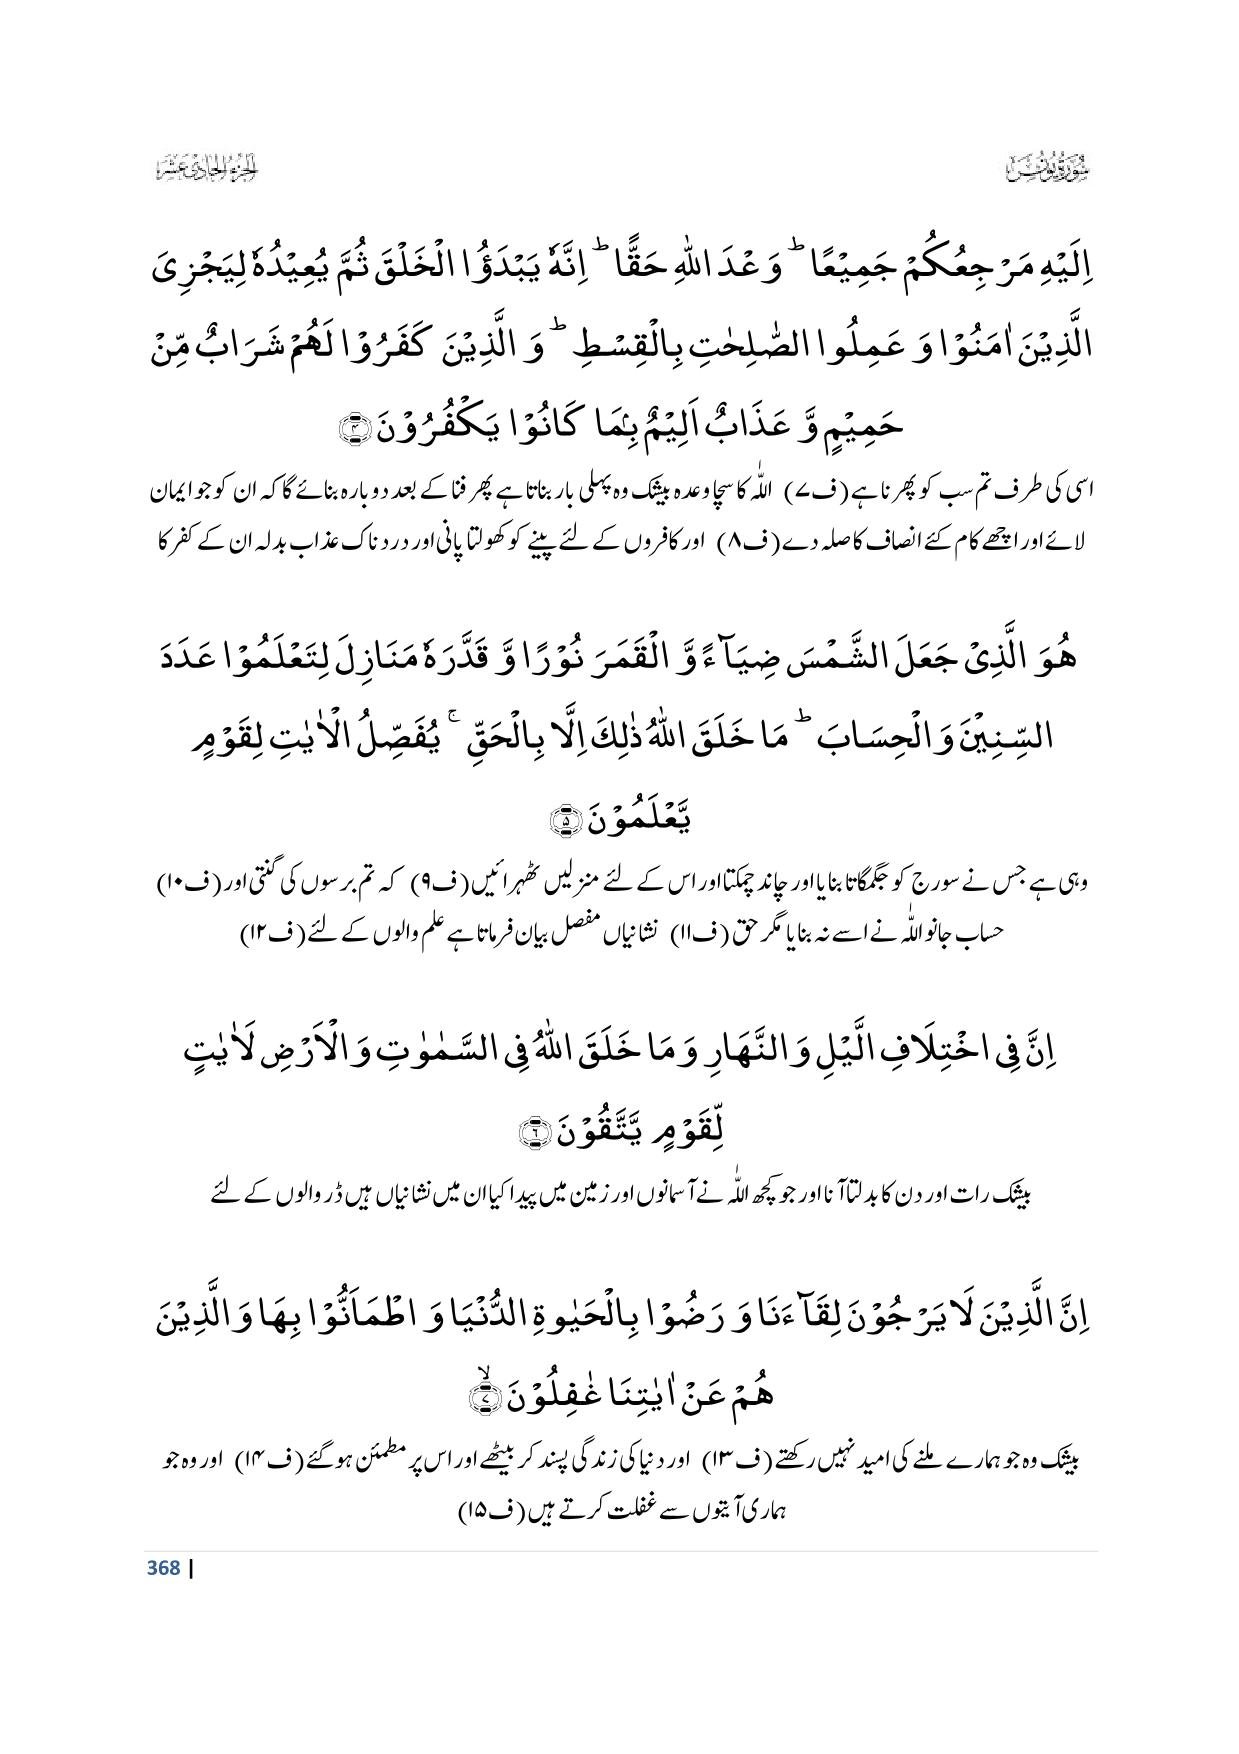 سُوْرَۃُ یُوْنُسَ
الجزء الحادی عشر
اِلَیْہِ مَرْجِعُکُمْ جَمِیْعًا ؕ وَعْدَ اللہِ حَقًّا ؕ اِنَّہٗ یَبْدَؤُا الْخَلْقَ ثُمَّ یُعِیْدُہٗ لِیَجْزِیَ
الَّذِیْنَ اٰمَنُوْا وَ عَمِلُوا الصّٰلِحٰتِ بِالْقِسْطِ ؕ وَ الَّذِیْنَ کَفَرُوْا لَہُمْ شَرَابٌ مِّنْ
حَمِیْمٍ وَّ عَذَابٌ اَلِیْمٌۢ بِمَا کَانُوْا یَکْفُرُوْنَ ﴿۴﴾
اسی کی طرف تم سب کو پھرنا ہے (ف۷) اللہ کا سچا وعدہ بیشک وہ پہلی بار بناتا ہے پھر فنا کے بعد دوبارہ بنائے گا کہ ان کو جو ایمان
لائے اور اچھے کام کئے انصاف کا صلہ دے (ف۸) اور کافروں کے لئے پینے کو کھولتا پانی اور دردناک عذاب بدلہ ان کے کفر کا
ہُوَ الَّذِیْ جَعَلَ الشَّمْسَ ضِیَآءً وَّ الْقَمَرَ نُوْرًا وَّ قَدَّرَہٗ مَنَازِلَ لِتَعْلَمُوْا عَدَدَ
السِّنِیْنَ وَ الْحِسَابَ ؕ مَا خَلَقَ اللہُ ذٰلِکَ اِلَّا بِالْحَقِّ ۚ یُفَصِّلُ الْاٰیٰتِ لِقَوْمٍ
یَّعْلَمُوْنَ ﴿۵﴾
وہی ہے جس نے سورج کو جگمگاتا بنایا اور چاند چمکتا اور اس کے لئے منزلیں ٹھہرائیں (ف۹) کہ تم برسوں کی گنتی اور (ف۱۰)
حساب جانو اللہ نے اسے نہ بنایا مگر حق (ف۱۱) نشانیاں مفصل بیان فرماتا ہے علم والوں کے لئے (ف۱۲)
اِنَّ فِی اخْتِلَافِ الَّیْلِ وَ النَّہَارِ وَ مَا خَلَقَ اللہُ فِی السَّمٰوٰتِ وَ الْاَرْضِ لَاٰیٰتٍ
لِّقَوْمٍ یَّتَّقُوْنَ ﴿۶﴾
بیشک رات اور دن کا بدلتا آنا اور جو کچھ اللہ نے آسمانوں اور زمین میں پیدا کیا ان میں نشانیاں ہیں ڈر والوں کے لئے
اِنَّ الَّذِیْنَ لَا یَرْجُوْنَ لِقَآءَنَا وَ رَضُوْا بِالْحَیٰوۃِ الدُّنْیَا وَ اطْمَاَنُّوْا بِہَا وَ الَّذِیْنَ
ہُمْ عَنْ اٰیٰتِنَا غٰفِلُوْنَ ﴿ۙ۷﴾
بیشک وہ جو ہمارے ملنے کی امید نہیں رکھتے (ف۱۳) اور دنیا کی زندگی پسند کر بیٹھے اور اس پر مطمئن ہو گئے (ف۱۴) اور وہ جو
ہماری آیتوں سے غفلت کرتے ہیں (ف۱۵)
368 |